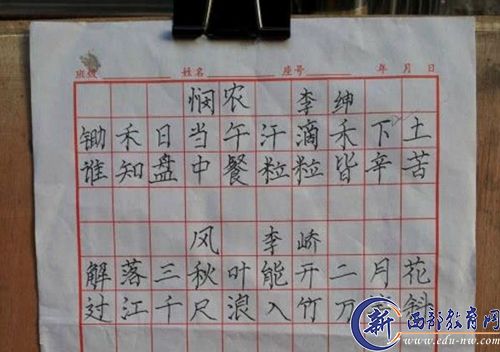 班级 姓名 座号 年 月 日
悯农 李绅
锄禾日当午汗滴禾下土
谁知盘中餐粒粒皆辛苦
风 李峤
解落三秋叶能开二月花
过江千尺浪入竹万 斜
新 西部教育网
www.edu-nw.com